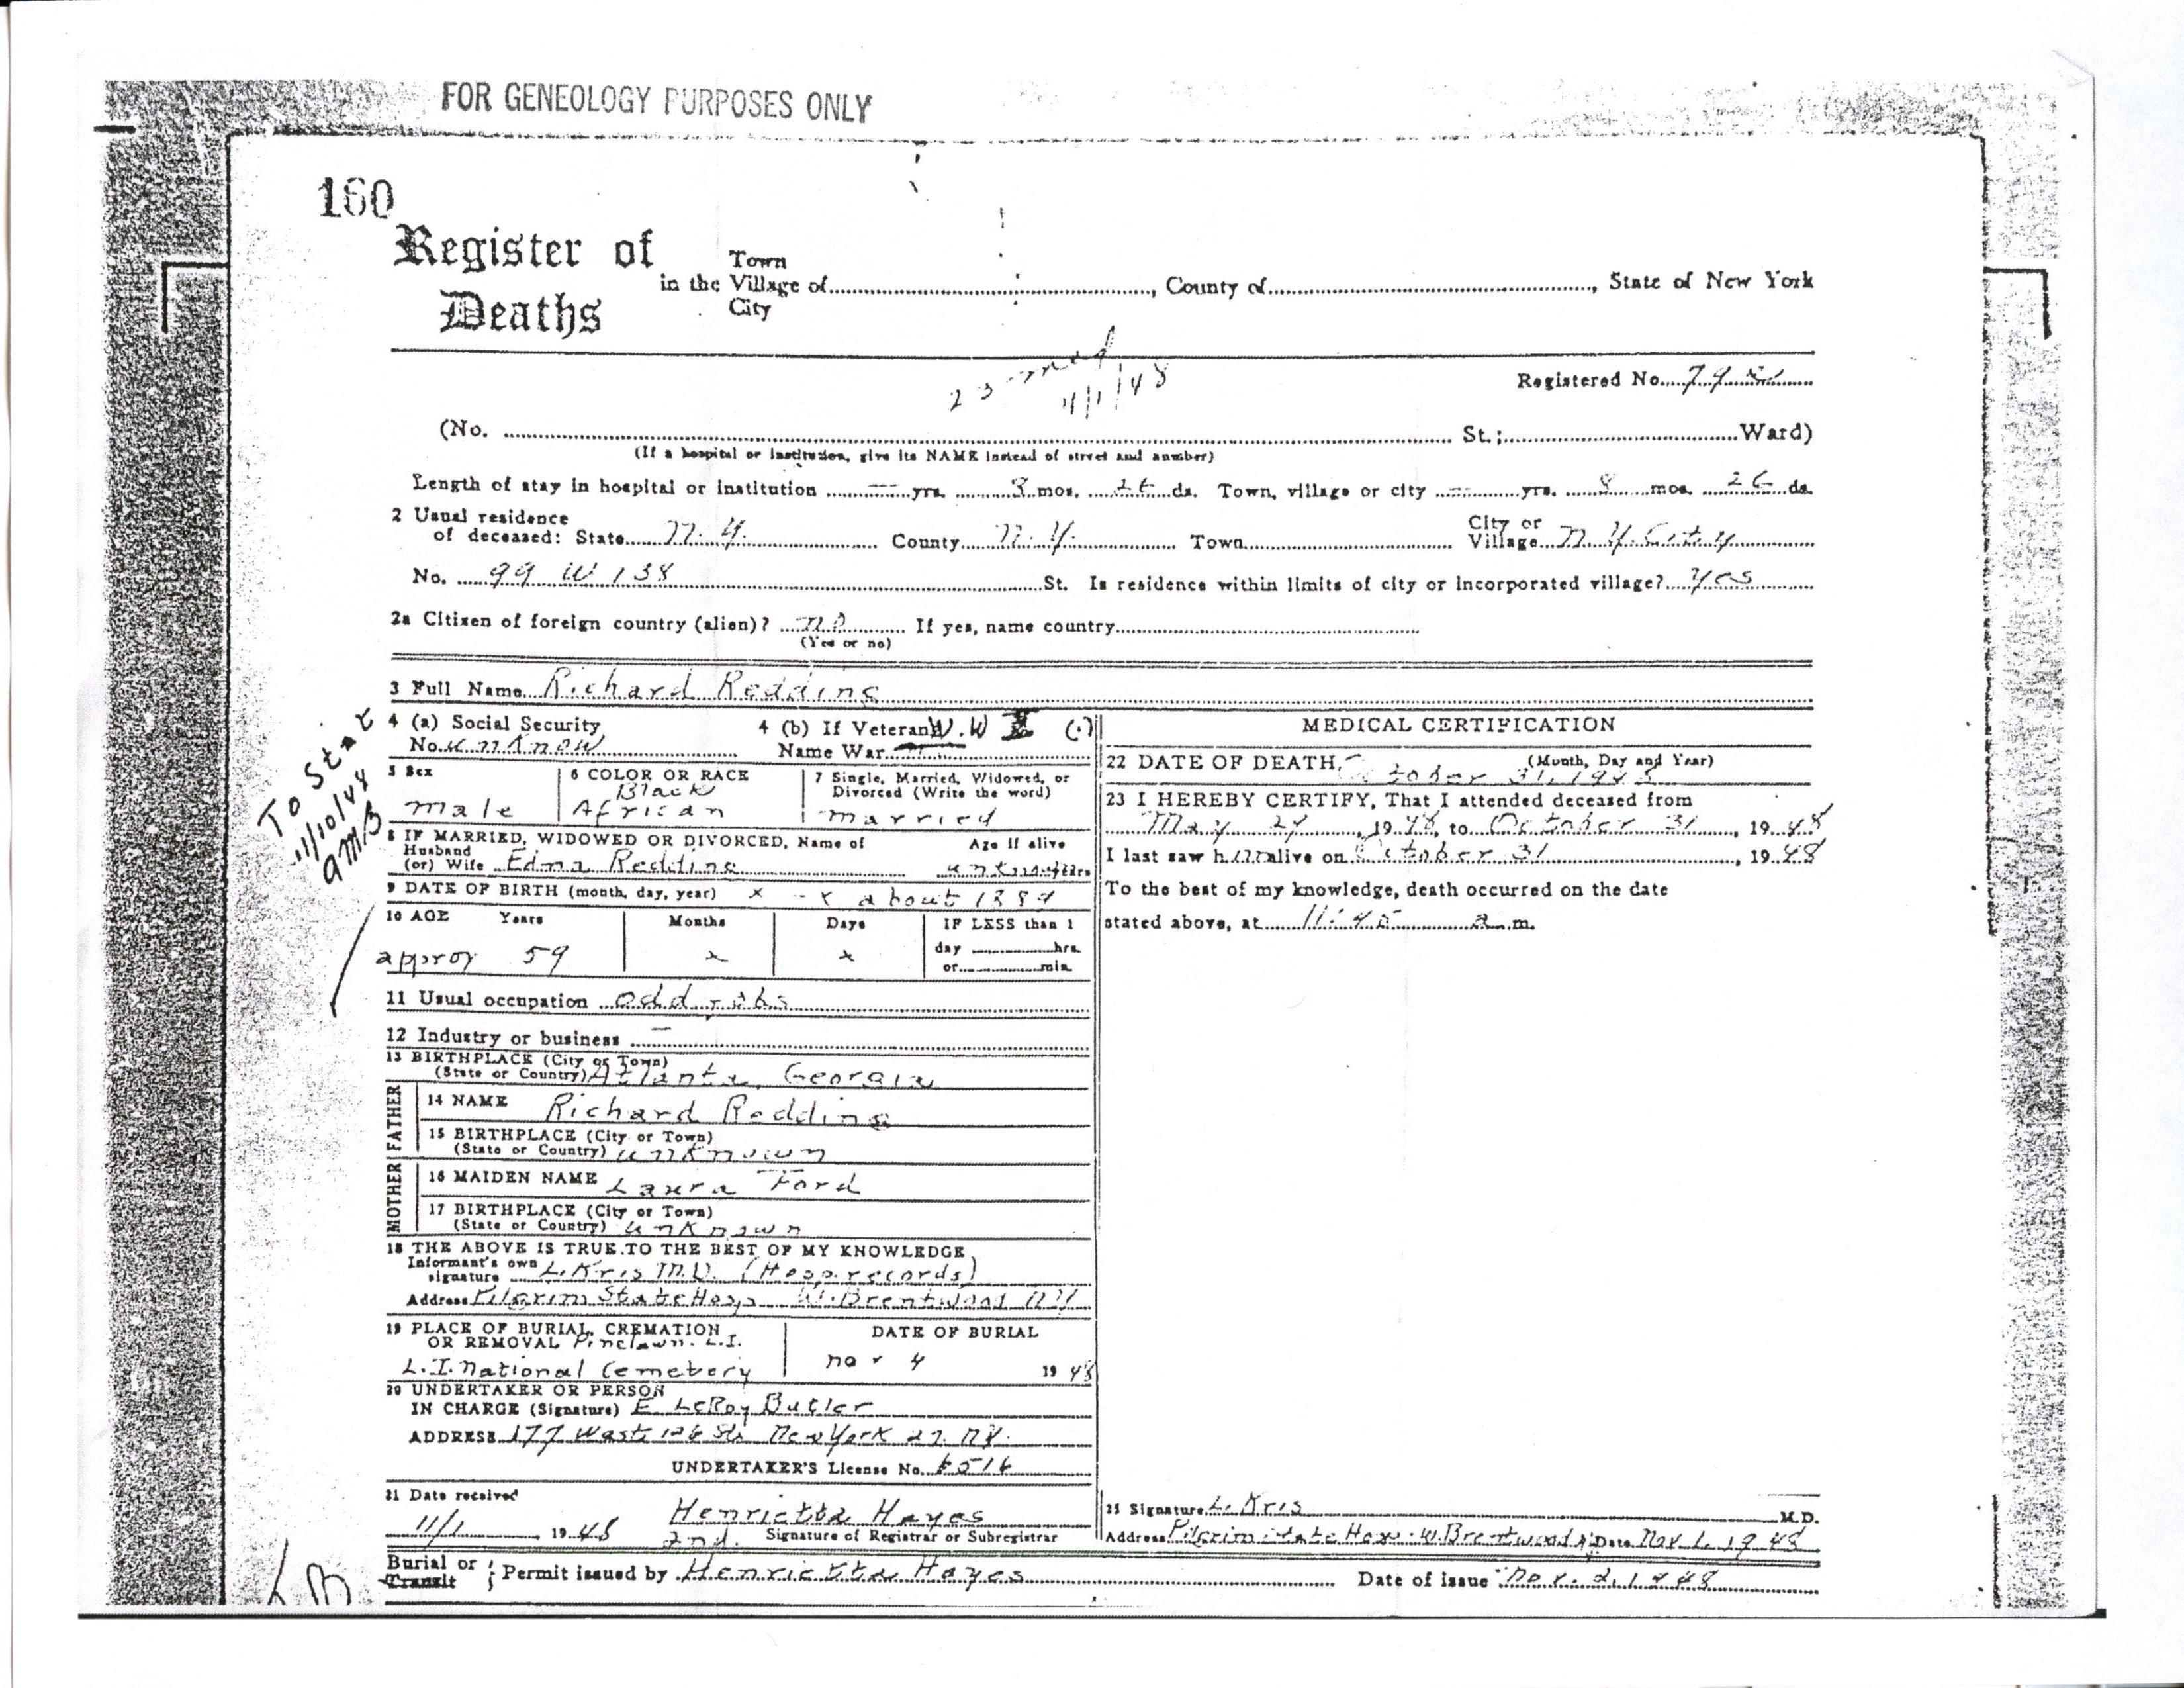 FOR GENEOLOGY PURPOSES ONLY
160
Register of Deaths
in the Town Village City of ........, County of ........, State of New York
23 med
11/1/48
Registered No. 79
(No. ........ St.; ........ Ward)
(If a hospital or institution, give its NAME instead of street and number)
Length of stay in hospital or institution — yrs. 8 mos. 26 ds. Town, village or city — yrs. 8 mos. 26 ds.
2 Usual residence of deceased: State N.Y. County N.Y. Town ........ City or Village N.Y. City
No. 99 W 138 St. Is residence within limits of city or incorporated village? Yes
2a Citizen of foreign country (alien)? no If yes, name country ........
(Yes or no)
3 Full Name Richard Redding
To State
11/10/48
amB
4 (a) Social Security No. unknow
4 (b) If Veteran Name War W.W I (.)
5 Sex male
6 COLOR OR RACE Black African
7 Single, Married, Widowed, or Divorced (Write the word) married
8 IF MARRIED, WIDOWED OR DIVORCED, Name of Husband (or) Wife Edna Redding
Age if alive unknown years
9 DATE OF BIRTH (month, day, year) x - x about 1889
10 AGE Years approx 59 Months x Days x IF LESS than 1 day ........ hrs. or ........ min.
11 Usual occupation odd jobs
12 Industry or business —
13 BIRTHPLACE (City or Town) (State or Country) Atlanta, Georgia
FATHER
14 NAME Richard Redding
15 BIRTHPLACE (City or Town) (State or Country) unknown
MOTHER
16 MAIDEN NAME Laura Ford
17 BIRTHPLACE (City or Town) (State or Country) unknown
18 THE ABOVE IS TRUE TO THE BEST OF MY KNOWLEDGE
Informant's own signature L. Kris M.D. (Hosp. records)
Address Pilgrim State Hosp W. Brentwood NY
19 PLACE OF BURIAL, CREMATION OR REMOVAL Pinelawn. L.I.
L.I. National Cemetery
DATE OF BURIAL
nov 4 1948
20 UNDERTAKER OR PERSON IN CHARGE (Signature) E LeRoy Butler
ADDRESS 177 West 126 St. New York 27. NY.
UNDERTAKER'S License No. 6516
21 Date received 11/1 1948
Henrietta Hayes
2nd. Signature of Registrar or Subregistrar
MEDICAL CERTIFICATION
22 DATE OF DEATH, October 31, 1948 (Month, Day and Year)
23 I HEREBY CERTIFY, That I attended deceased from
May 24, 1948, to October 31, 1948
I last saw him alive on October 31, 1948
To the best of my knowledge, death occurred on the date
stated above, at 11:45 a m.
25 Signature L. Kris M.D.
Address Pilgrim State Hosp. W. Brentwood Date Nov 1, 1948
Burial or Transit } Permit issued by Henrietta Hayes Date of issue Nov. 2, 1948